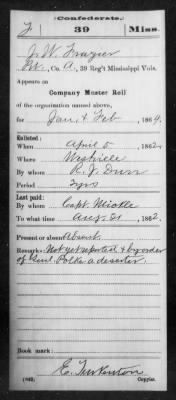 Confederate.
F 39 Miss.
J. W. Frazier
Pvt., Co. A., 39 Reg't Mississippi Vols.
Appears on
Company Muster Roll
of the organization named above,
for Jan. & Feb, 1864.
Enlisted:
When April 5, 1862.
Where
By whom R. J. Durr
Period 3 yrs
Last paid:
By whom Capt. Mickle
To what time Aug. 31, 1862.
Present or absent Absent
Remarks: Not yet reported & by order
of Genl. Polk a deserter.
Book mark:
(642) Copyist.